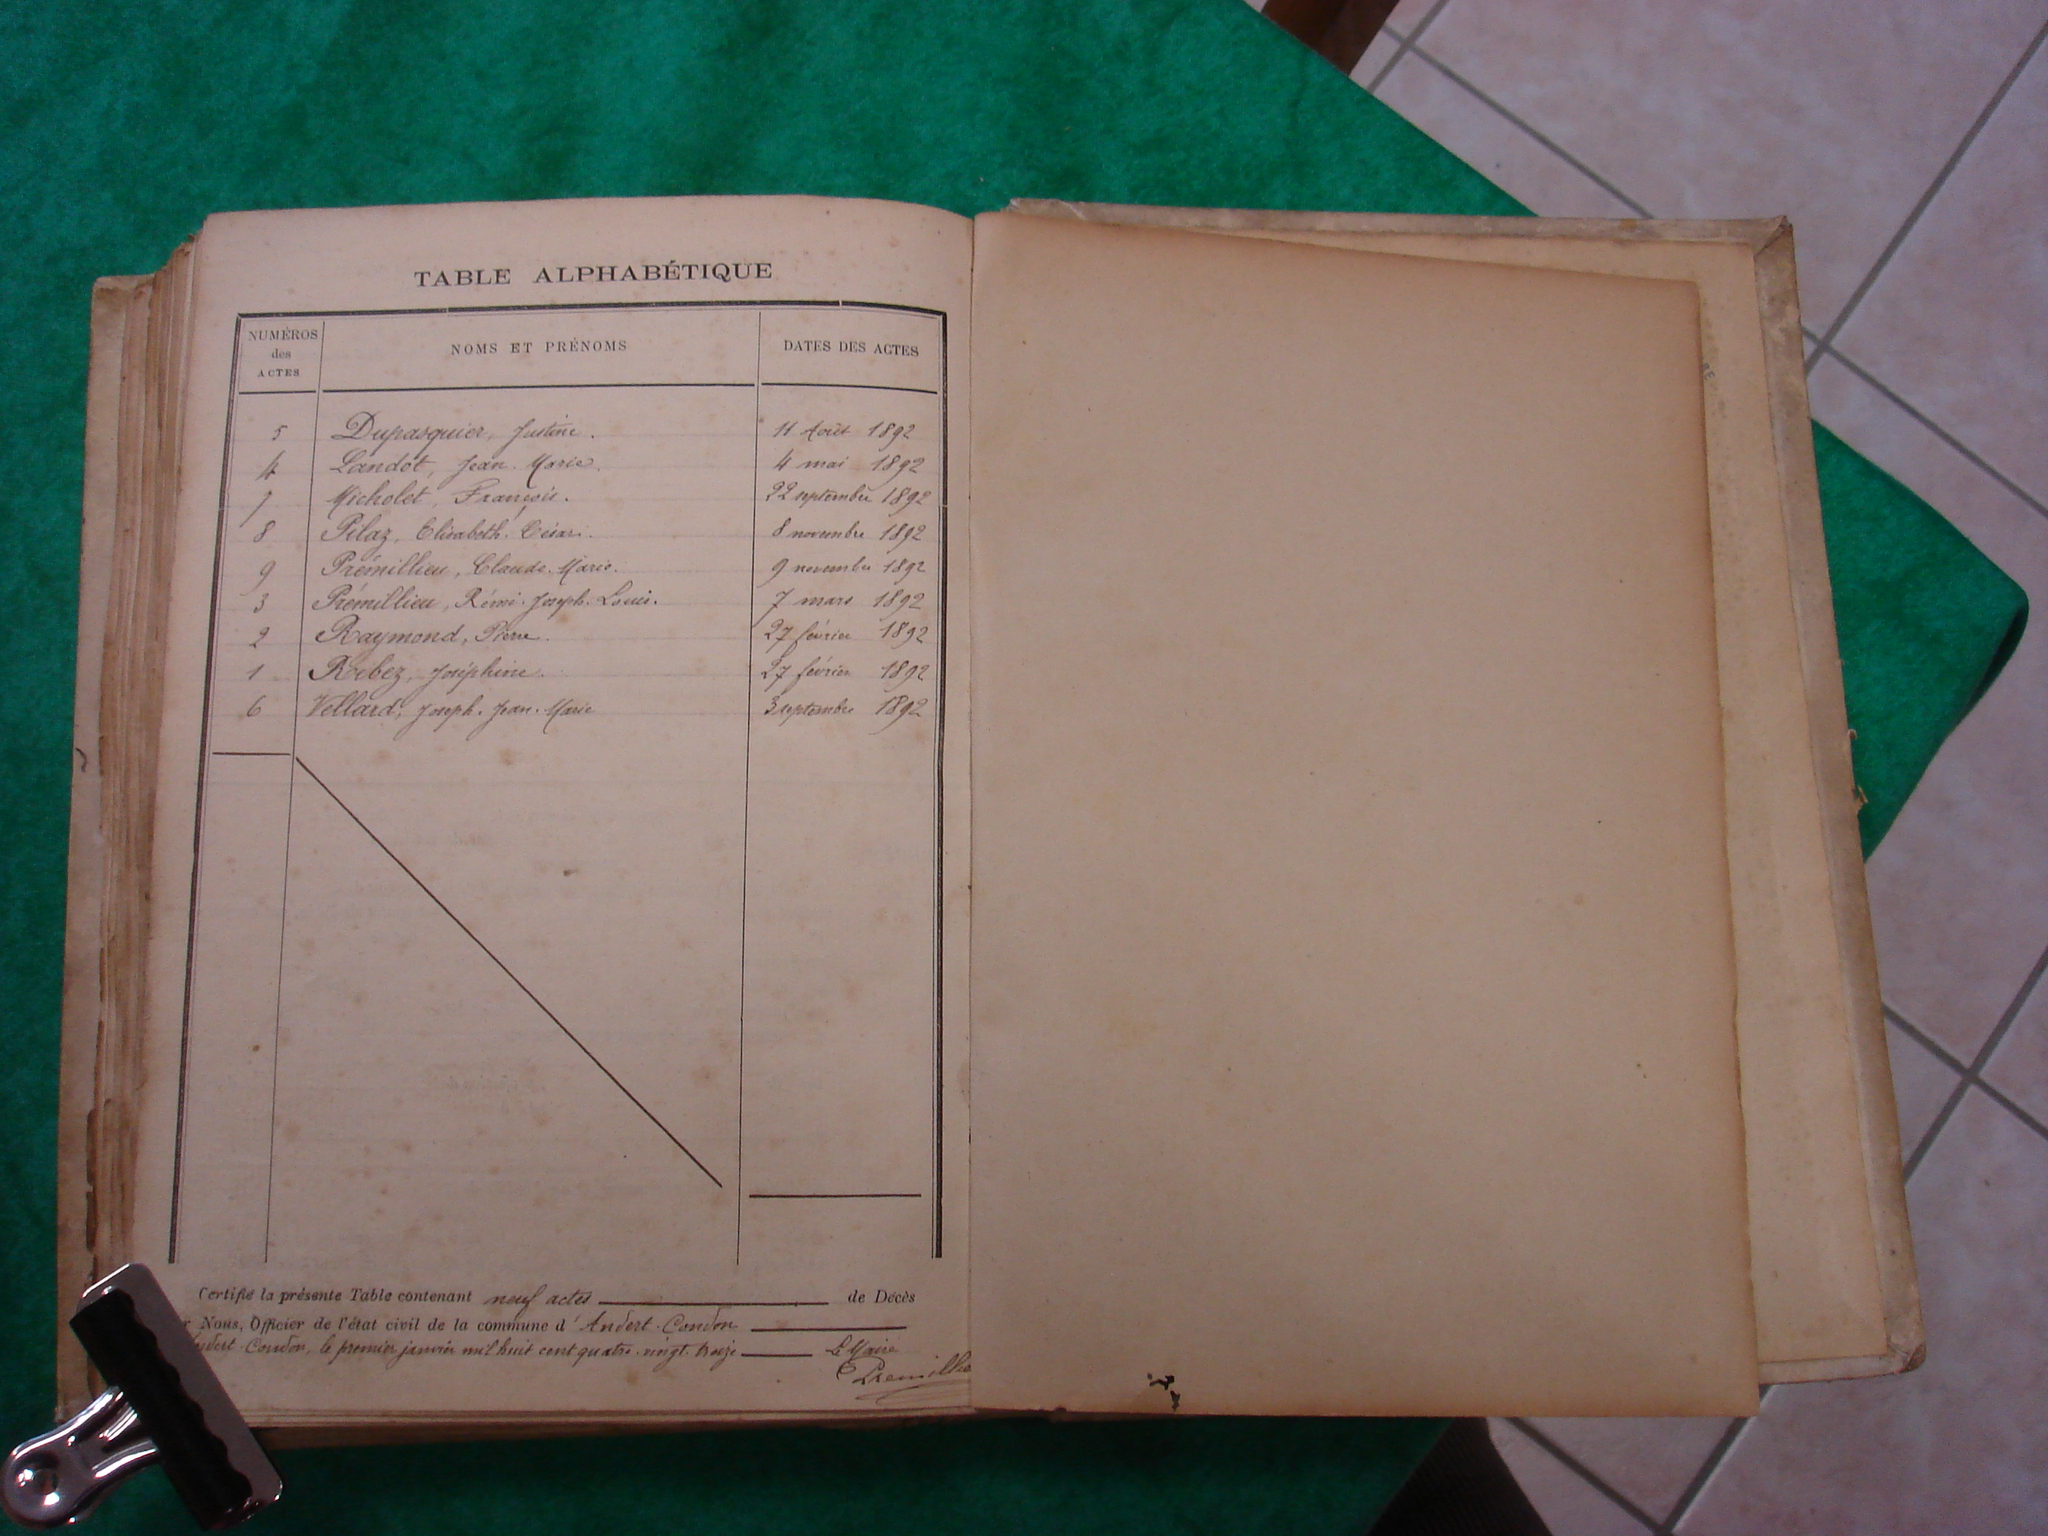 TABLE ALPHABÉTIQUE
NUMÉROS des ACTES NOMS ET PRÉNOMS DATES DES ACTES
5 Dupasquier, Justine. 11 Août 1892
4 Landot, Jean-Marie. 4 mai 1892
7 Micholet, François. 22 septembre 1892
8 Pilaz, Elisabeth 8 novembre 1892
9 Prémillieu, Claude-Marie. 9 novembre 1892
3 Prémillieu, Rémi-Joseph-Louis. 7 mars 1892
2 Raymond, Pierre. 27 février 1892
1 Rebez, Joséphine. 27 février 1892
6 Vellard, Joseph-Jean-Marie 3 septembre 1892
Certifié la présente Table contenant neuf actes de Décès
Nous, Officier de l'état civil de la commune d'Andert-Condon
Andert-Condon, le premier janvier mil huit cent quatre-vingt-treize Le Maire